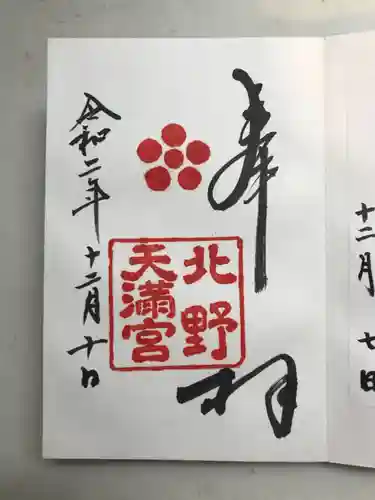 十二月 七日
奉拝
北野
天満宮
令和二年 十二月十日